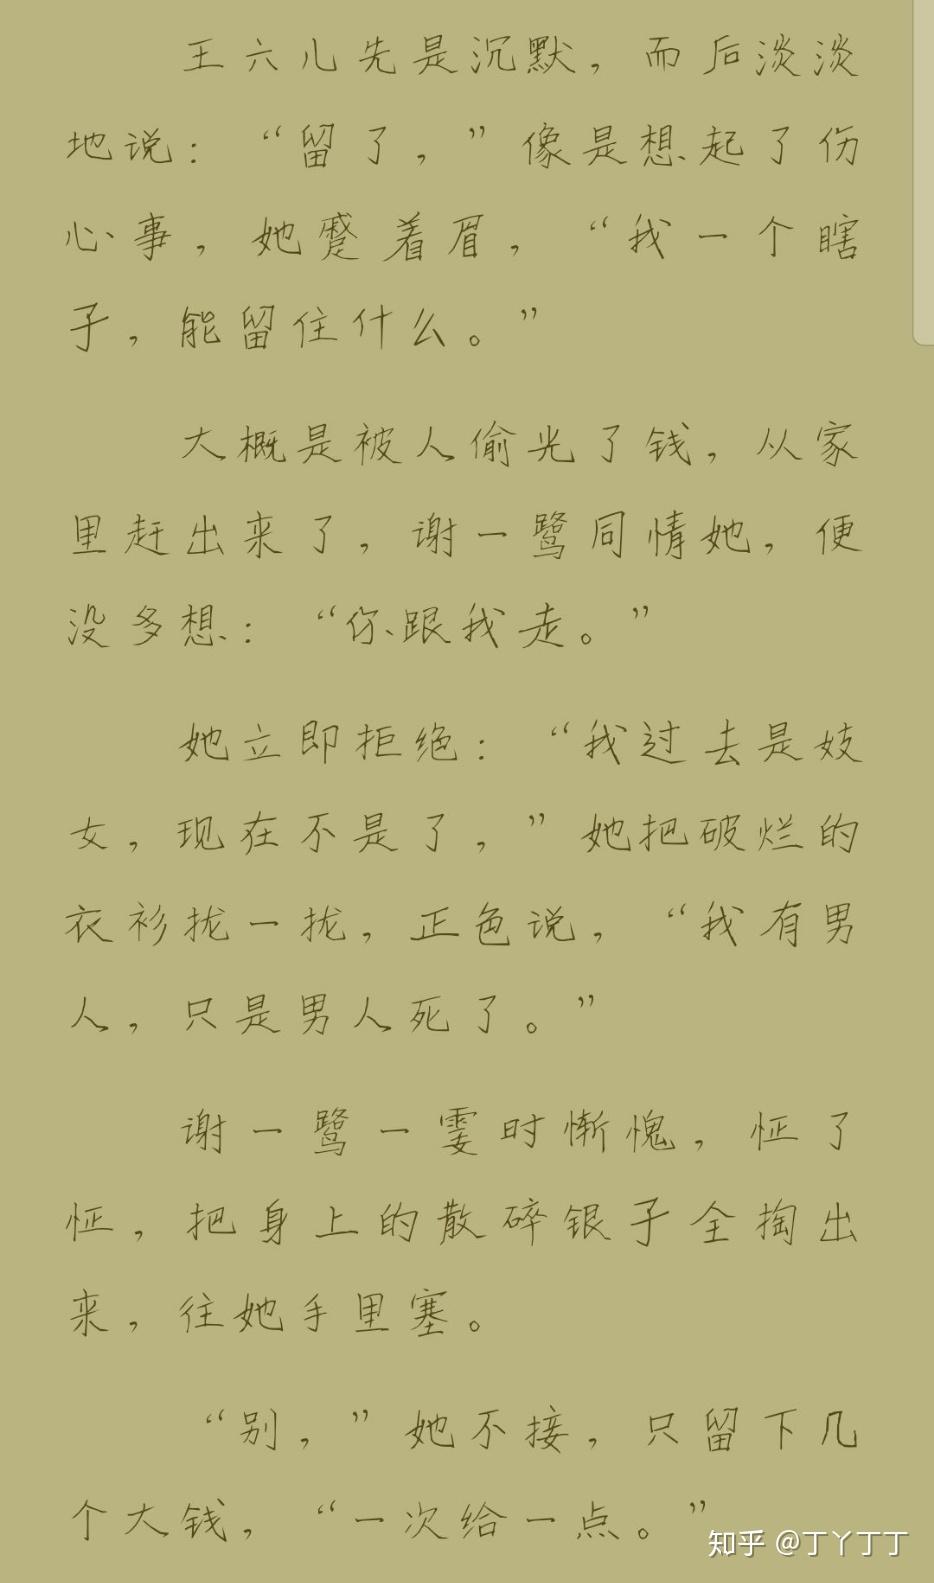 王六儿先是沉默，而后淡淡
地说：“留了，”像是想起了伤
心事，她蹙着眉，“我一个瞎
子，能留住什么。”
大概是被人偷光了钱，从家
里赶出来了，谢一鹭同情她，便
没多想：“你跟我走。”
她立即拒绝：“我过去是妓
女，现在不是了，”她把破烂的
衣衫拢一拢，正色说，“我有男
人，只是男人死了。”
谢一鹭一霎时惭愧，怔了
怔，把身上的散碎银子全掏出
来，往她手里塞。
“别，”她不接，只留下几
个大钱，“一次给一点。”
知乎 @丁丫丁丁